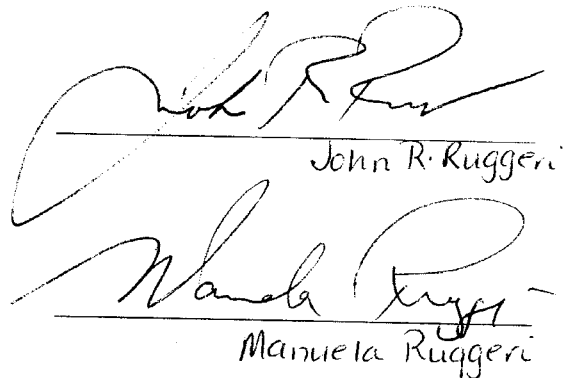 John R Rugg
John R. Ruggeri
Manuela Ruggeri
Manuela Ruggeri